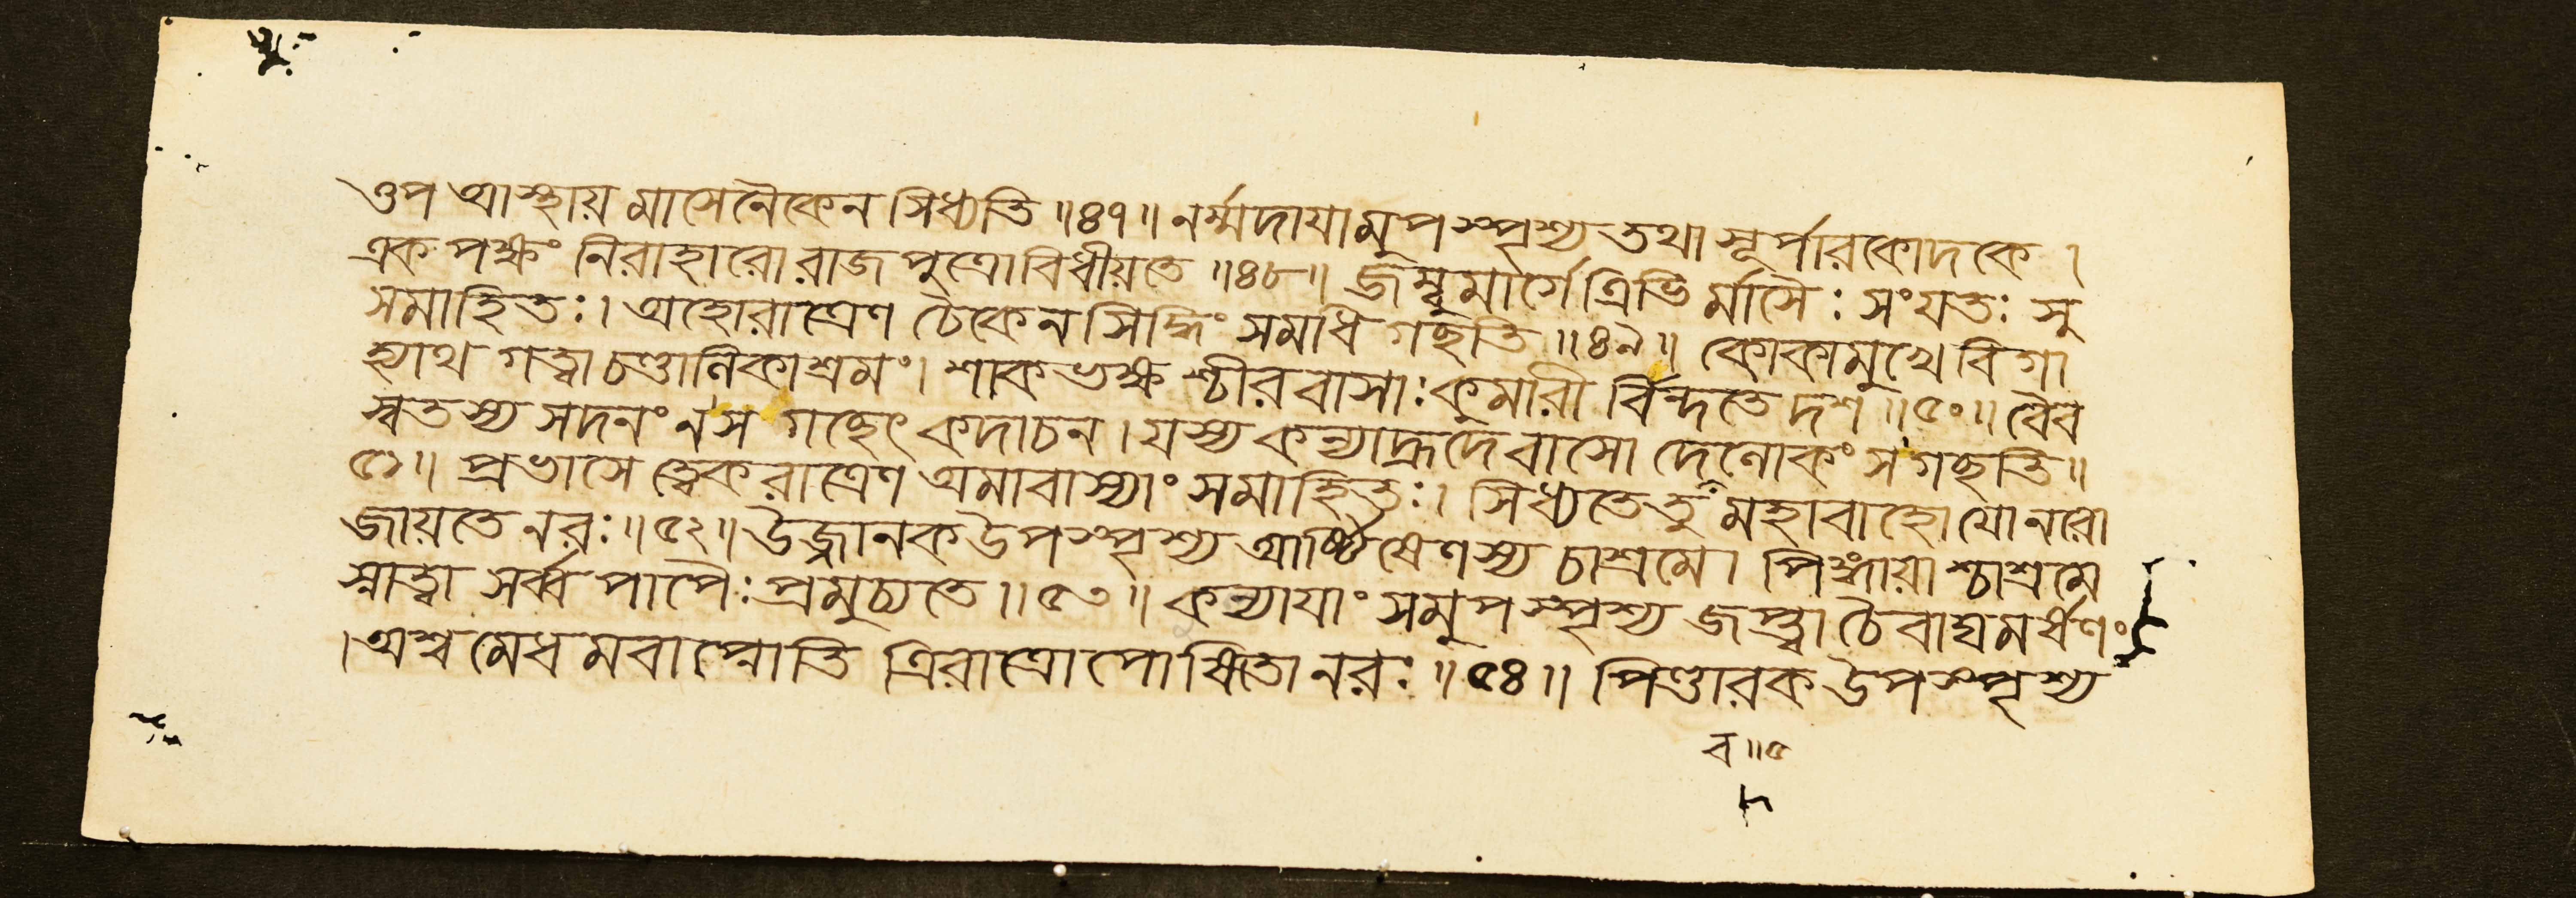 ওপ আস্থায় মাসেনৈকেন সিধ্যতি ॥৪৭॥ নর্ম্মদাযামুপস্পৃশ্য তথা সূর্পারকোদকে ।
এক পক্ষং নিরাহারো রাজপুত্রো বিধীয়তে ॥৪৮॥ জম্বুমার্গে ত্রিভির্মাসৈঃ সংযতঃ সু
সমাহিতঃ। অহোরাত্রেণ চৈকেন সিদ্ধিং সমধিগছতি ॥৪৯॥ কোকামুখে বিগা
হ্যাথ গত্বা চণ্ডানিকাশ্রমং। শাকভক্ষশ্চীরবাসাঃ কুমারী র্বিন্দতে দশ ॥৫০॥ বৈব
স্বতস্য সদনং ন স গচ্ছেৎ কদাচন । যস্য কন্যাহ্রদে বাসো দেনোকং স গছতি॥
৫১॥ প্রভাসে ত্বেকরাত্রেণ অমাবাস্যাং সমাহিতঃ। সিধ্যতে তু মহাবাহো যো নরো
জায়তে নরঃ॥৫২॥ উজ্জানক উপস্পৃশ্য আর্ষ্টিষেণস্য চাশ্রমে। পিঙ্গায়াশ্চাশ্রমে
স্নাত্বা সর্ব্ব পাপৈঃ প্রমুচ্যতে ॥৫৩॥ কন্যাযাং সমুপস্পৃশ্য জপ্ত্বা চৈবাঘমর্ষণং
।অশ্বমেধমবাপ্নোতি ত্রিরাত্রোপোষিতো নরঃ ॥৫৪॥ পিণ্ডারক উপস্পৃশ্য
ব॥৫